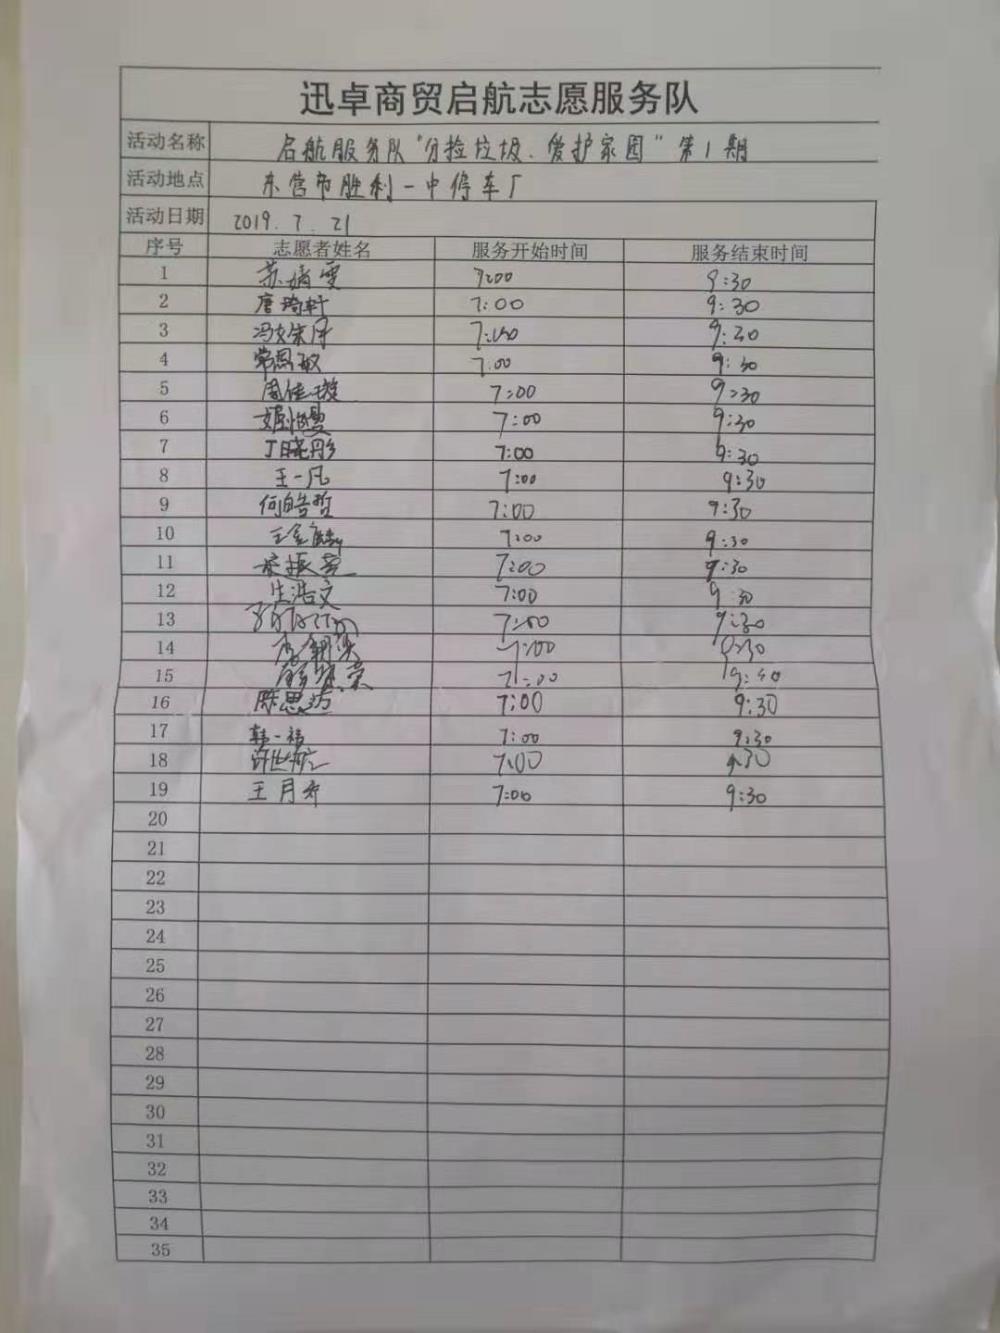 迅卓商贸启航志愿服务队
活动名称 启航服务队"分捡垃圾、爱护家园"第1期
活动地点 东营市胜利一中停车厂
活动日期 2019.7.21
序号 志愿者姓名 服务开始时间 服务结束时间
1 苏婧雯 7:00 9:30
2 唐琦轩 7:00 9:30
3 7:00 9:30
4 常恩 7:00 9:30
5 周佳璇 7:00 9:30
6 7:00 9:30
7 丁晓彤 7:00 9:30
8 王一凡 7:00 9:30
9 何皓哲 7:00 9:30
10 王 7:00 9:30
11 7:00 9:30
12 生浩文 7:00 9:30
13 7:00 9:30
14 7:00 9:30
15 7:00
16 陈思 7:00 9:30
17 韩一 7:00 9:30
18 许世 7:00 9:30
19 王月 7:00 9:30
20
21
22
23
24
25
26
27
28
29
30
31
32
33
34
35